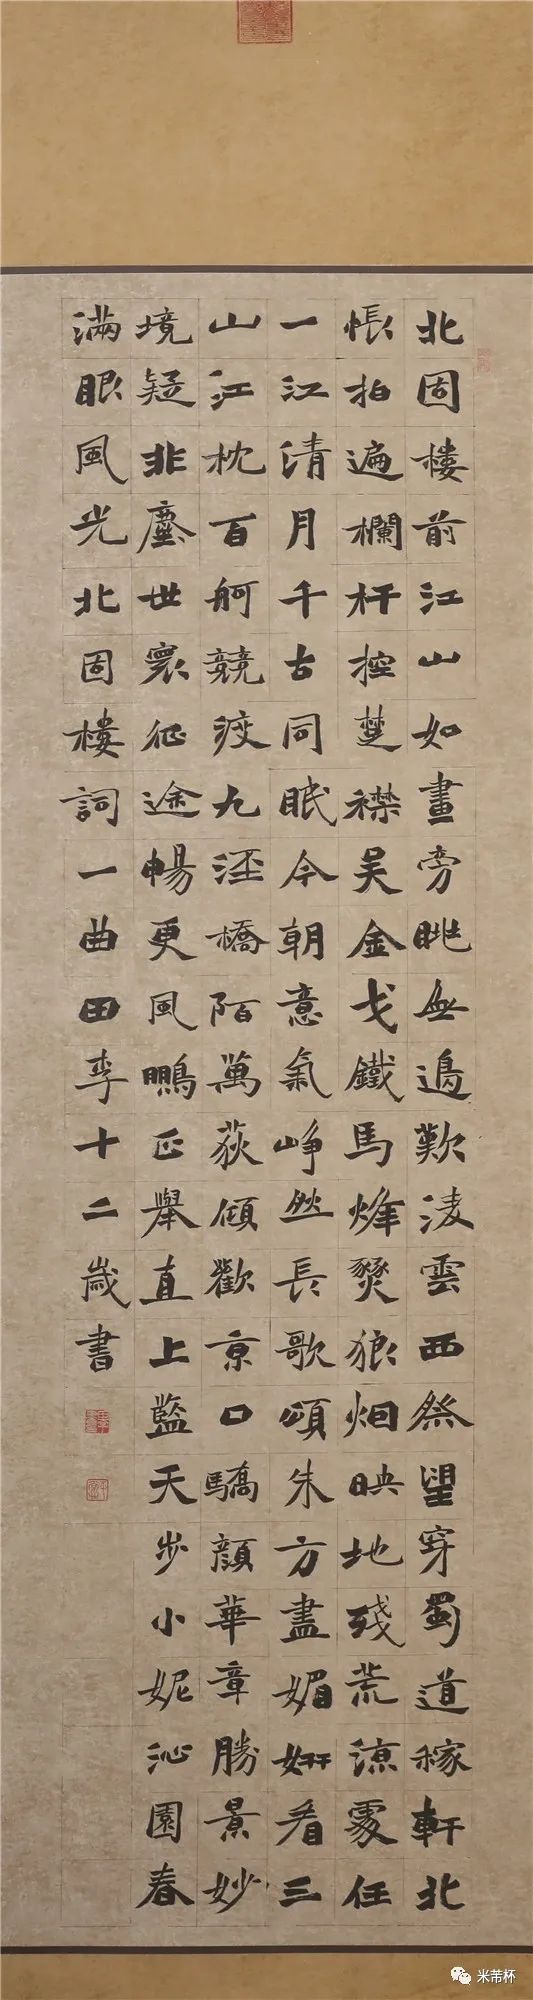 北固樓前江山如畫旁眺無邊歎淩雲西祭望穿蜀道稼軒北
悵拍遍欄杆控楚襟吳金戈鐵馬烽燹狼烟映地殘荒涼處任
一江清月千古同眠今朝意氣崢然長歌頌朱方盡媚妍看三
山江枕百舸競渡九逕橋陌萬荻傾歡京口驕顏華章勝景妙
境疑非塵世寰征途暢更風鵬正舉直上藍天步小妮沁園春
滿眼風光北固樓詞一曲田李十二歲書
米芾杯